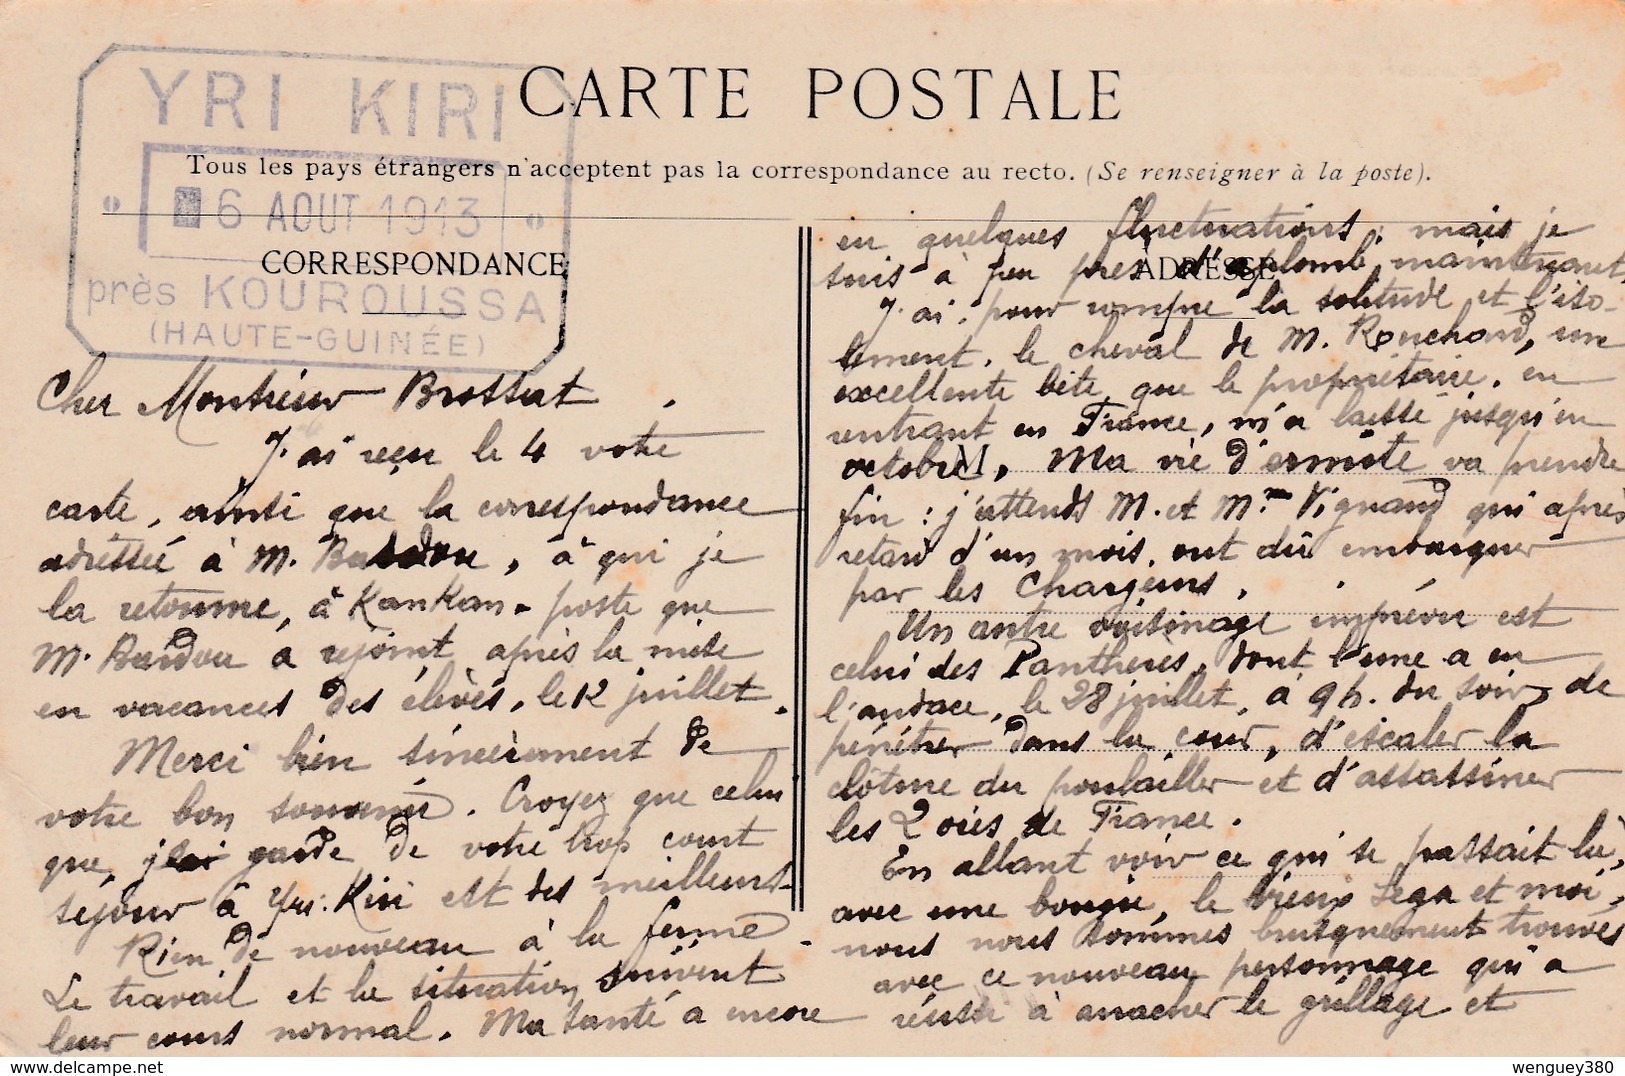 YRI KIRI
6 AOUT 1913
près KOUROUSSA
(HAUTE-GUINÉE)
CARTE POSTALE
Tous les pays étrangers n'acceptent pas la correspondance au recto. (Se renseigner à la poste).
CORRESPONDANCE
Cher Monsieur Brossat
J'ai reçu le 4 votre
carte, ainsi que la correspondance
adressée à M. Bardou, à qui je
la retourne, à Kankan-poste que
M. Bardou a rejoint après la mise
en vacances des élèves, le 12 juillet.
Merci bien sincèrement de
votre bon souvenir. Croyez que celui
que j'ai gardé de votre trop court
séjour à Yri-Kiri est des meilleurs
Rien de nouveau à la ferme.
Le travail et la situation suivent
leur cours normal. Ma santé a encore
ADRESSE
eu quelques fluctuations, mais je
suis à peu près d'aplomb maintenant,
J'ai, pour rompre la solitude et l'iso-
lement, le cheval de M. Rouchard, une
excellente bête que le propriétaire, en
rentrant en France, m'a laissé jusqu'en
octobre. Ma vie d'ermite va prendre
M
fin : j'attends M. et Mme Vignaud qui après
retard d'un mois, ont dû embarquer
par les Chargeurs.
Un autre voisinage imprévu est
celui des Panthères, dont l'une a eu
l'audace, le 28 juillet, à 9h. du soir, de
pénétrer dans la cour, d'escaler la
clôture du poulailler et d'assassiner
les 2 oies de France.
En allant voir ce qui se passait là,
avec une bougie, le vieux Sega et moi,
nous nous sommes brusquement trouvés
avec ce nouveau personnage qui a
réussi à arracher le grillage et
wenguey380